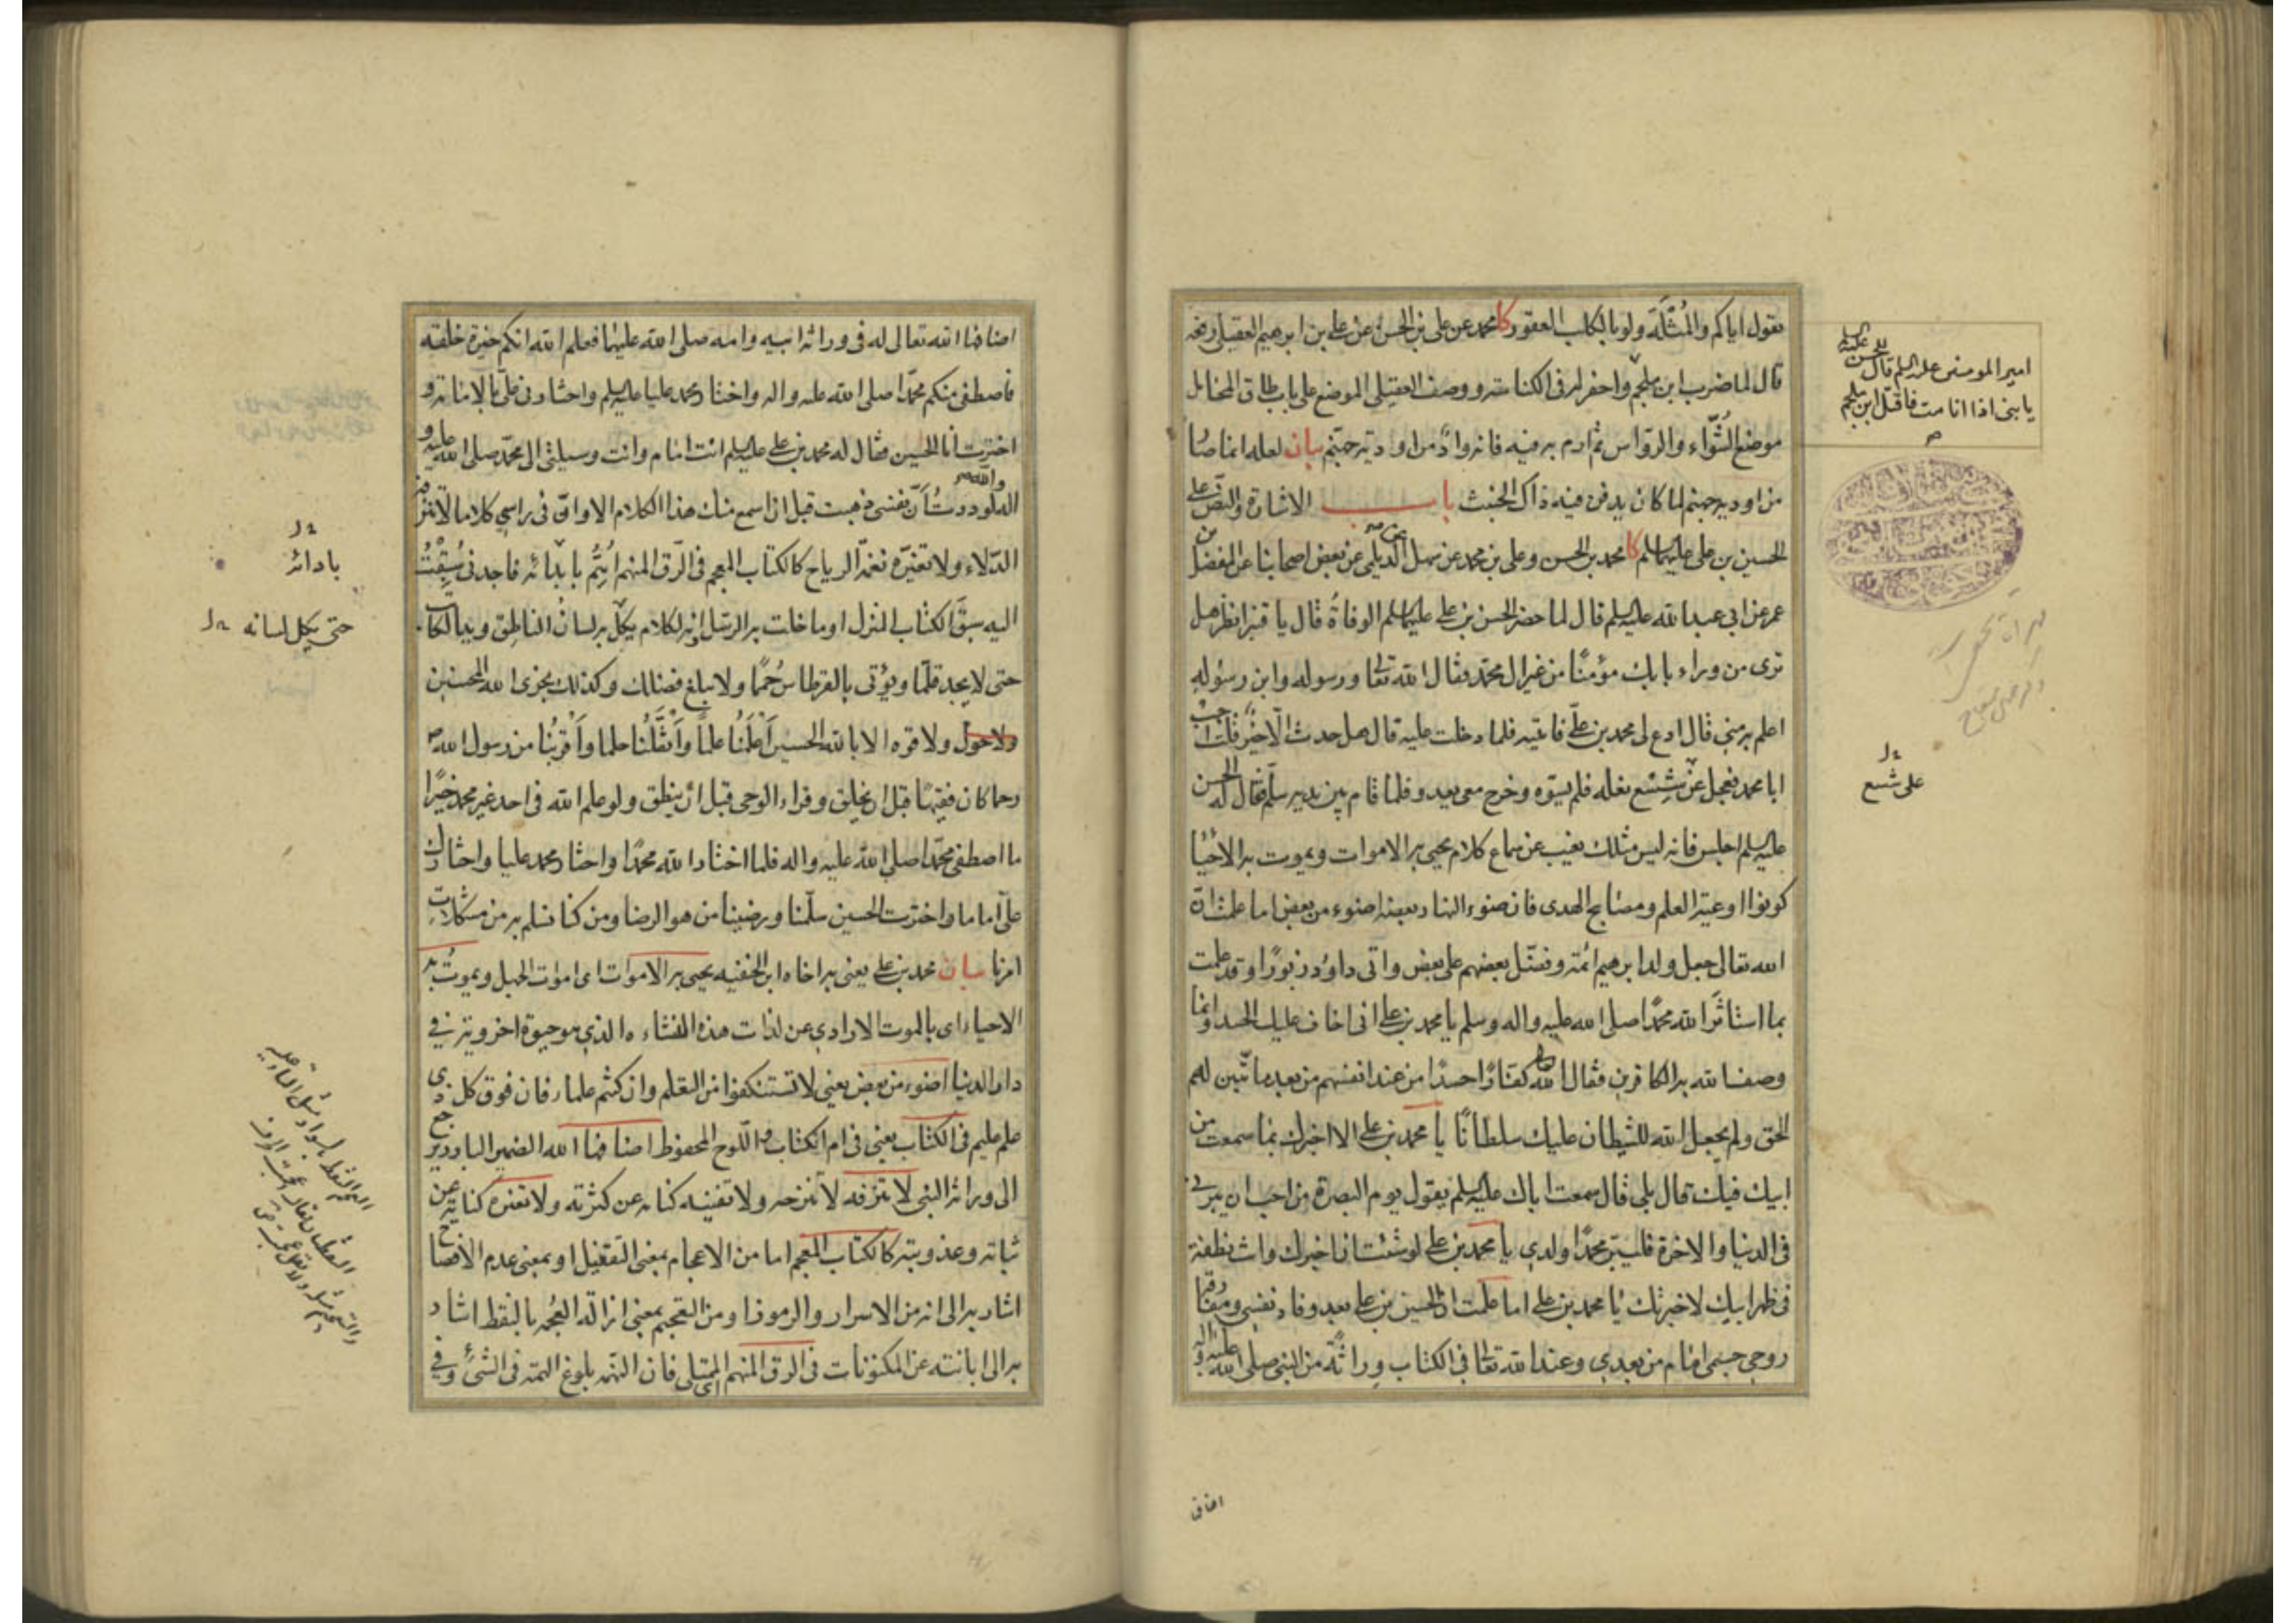 يقول اياكم والمُثْلَة ولو بالكلب العقور كا محمد عن علي بن الحسن عن علي بن ابرهيم العقيلي رفعه
قال لما ضرب ابن ملجم واحفر له في الكناسة ووصف العقيلي الموضع على باب طاق المحامل
موضع الشّواء والروّاس ثم ارم به فيه فانه وادٍ من اودية جهنّم بيان لعله انما صار
من اودية جهنم لما كان يدفن فيه ذاك الخبث باب الاشارة والنص على
الحسين بن علي عليهما السلم كا محمد بن الحسن وعلي بن محمد عن سهل عن الديلمي عن بعض اصحابنا عن المفضل بن
عمر عن ابي عبد الله عليه السلم قال لما حضر الحسن بن علي عليهما السلم الوفاة قال يا قنبر انظر هل
ترى من وراء بابك مؤمنًا من غير ال محمّد فقال الله تعالى ورسوله وابن رسوله
اعلم به مني قال ادع لي محمد بن عليّ فاتيته فلما دخلت عليه قال هل حدث الّا خير قلت اجب
ابا محمد فعجل عن شِسْع نعله فلم يسوّه وخرج معي يعدو فلما قام بين يديه سلّم فقال له الحسن
عليه السلم اجلس فانه ليس مثلك يغيب عن سماع كلام يحيى به الاموات ويموت به الاحيا
كونوا اوعية العلم ومصابيح الهدى فان ضوء النهار بعضه اضوء من بعض اما علمت انّ
الله تعالى جعل ولد ابرهيم ائمة وفضّل بعضهم على بعض واتى داود زبورًا وقد علمت
بما استاثَرَ الله محمدًا صلى الله عليه واله وسلم يا محمد بن علي اني اخاف عليك الحسد وانما
وصف الله به الكافرين فقال الله كفارًا حسدًا من عند انفسهم من بعد ما تبّين لهم
الحق ولم يجعل الله للشيطان عليك سلطانًا يا محمد بن علي الا اخبرك بما سمعت من
ابيك فيك قال بلى قال سمعت اباك عليه السلم يقول يوم البصرة من احب ان يبرني
في الدنيا والاخرة فليبرّ محمدًا ولدي يا محمد بن علي لو شئت ان اخبرك وانت نطفة
في ظهر ابيك لاخبرتك يا محمد بن علي اما علمت ان الحسين بن علي بعد وفاة نفسي ومفارقة
روحي جسمي امام من بعدي وعند الله تعالى في الكتاب وراثةً من النبي صلى الله عليه واله
امير المومنين عليه السلم قال للحسن عليه السلم
يا بني اذا انا مت فاقتل ابن ملجم
صح
على شسع
اضافها الله تعالى له في وراثة ابيه وامه صلى الله عليهما فعلم الله انكم خيرة خلقه
فاصطفى منكم محمّدًا صلى الله عليه واله واختار محمد عليا عليه السلم واختارني عليّ بالامامة و
اخترت انا الحسين فقال له محمد بن علي عليه السلم انت امام وانت وسيلتي الى محمّد صلى الله عليه و
اله والله لوددتُ اَنّ نفسي ذهبت قبل ان اسمع منك هذا الكلام الا وانّ في راسي كلاما لا تنزفه
الدّلاء ولا تغيّره نغمة الرياح كالكتاب المعجم في الرّق المنهم اَهُمُّ بابدائه فاجدني سُبِقْتُ
اليه سبقَ الكتاب المنزل او ما خلت به الرسل وانه لكلام يكلّ به لسانُ الناطق ويد الكاتب
حتى لا يجد قلمًا ويؤتى بالقرطاس حُمَمًا ولا يبلغ فضلك وكذلك يجزى الله المحسنين
ولا حول ولا قوة الا بالله الحسين اَعْلَمُنا علمًا واَثْقَلُنا حلما واَقْرَبُنا من رسول الله ص
رحما كان فقيهًا قبل ان يخلق وقراء الوحي قبل ان ينطق ولو علم الله في احد غير محمد خيرًا
ما اصطفى محمّدًا صلى الله عليه واله فلما اختار الله محمدًا واختار محمد عليا واختارك
عليّ اماما واخترت الحسين سلّمنا ورضينا من هو الرضا ومن كنا نسلم به من مشكلاتِ
امرنا بيان محمد بن علي يعني به اخاه ابن الحنفيه يحيى به الاموات اى اموات الجهل ويموتُ به
الاحياء اى بالموت الارادي عن لذات هذه النشاءه الذي هو حيوة اخروية في
دار الدنيا اضوء من بعض يعني لا تستنكفوا من التعلم وان كنتم علماء فان فوق كل ذى
علم عليم في الكتاب يعني في ام الكتاب واللّوح المحفوظ اضافها الله الضمير البارز يرجع
الى وراثة النبي لا تنزفه لا تنزحه ولا تفنيه كنايه عن كثرته ولا تغيره كناية عن
ثباته وعذوبته كالكتاب المعجم اما من الاعجام بمعنى التقفيل او بمعنى عدم الافصاح
اشار به الى انه من الاسرار والرموز او من التعجيم بمعنى ازالة العُجمه بالنقط اشار
به الى ابانته عن المكنونات في الرق المنهم اى الممتلى فان النّهَم بلوغ الهمة في الشئ وفي
بادائه
حتى يكل لسانه